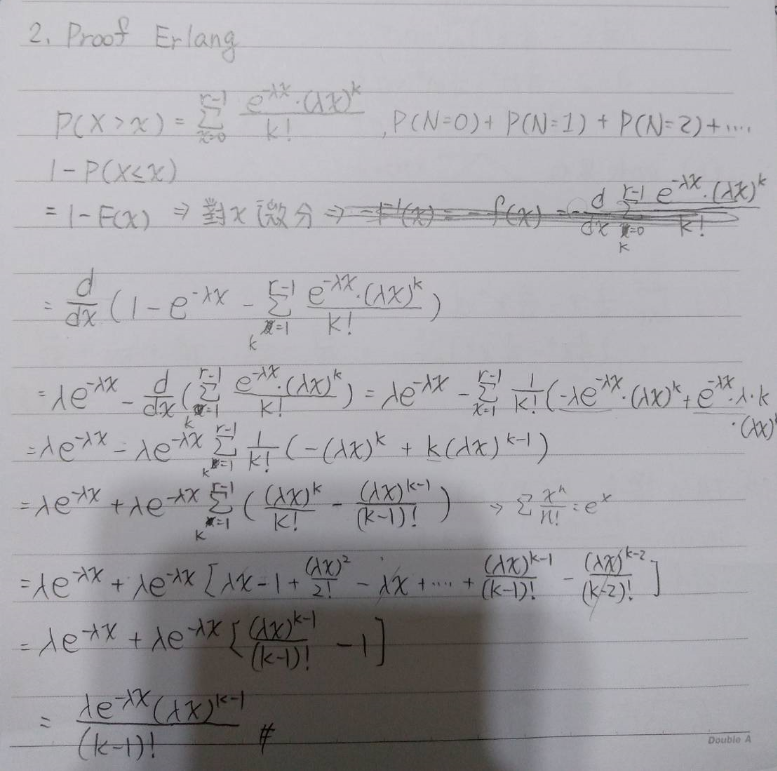 2. Proof Erlang
P(X>x) = Σ_{x=0}^{r-1} e^{-λx}·(λx)^k / k! , P(N=0) + P(N=1) + P(N=2) + ....
1-P(X≤x)
= 1-F(x) ⇒ 對x微分 ⇒ -F'(x) = -f(x) = d/dx Σ_{k=0}^{r-1} e^{-λx}·(λx)^k / k!
= d/dx (1 - e^{-λx} - Σ_{k=1}^{r-1} e^{-λx}·(λx)^k / k!)
= λe^{-λx} - d/dx (Σ_{k=1}^{r-1} e^{-λx}·(λx)^k / k!) = λe^{-λx} - Σ_{x=1}^{r-1} 1/k! (-λe^{-λx}·(λx)^k + e^{-λx}·λ·k
·(λx)^k
= λe^{-λx} - λe^{-λx} Σ_{k=1}^{r-1} 1/k! (-(λx)^k + k(λx)^{k-1})
= λe^{-λx} + λe^{-λx} Σ_{k=1}^{r-1} ((λx)^k / k! - (λx)^{k-1} / (k-1)!) → Σ x^n / n! = e^x
= λe^{-λx} + λe^{-λx} [λx - 1 + (λx)^2 / 2! - λx + .... + (λx)^{k-1} / (k-1)! - (λx)^{k-2} / (k-2)!]
= λe^{-λx} + λe^{-λx} [(λx)^{k-1} / (k-1)! - 1]
= λe^{-λx}(λx)^{k-1} / (k-1)! #
Double A